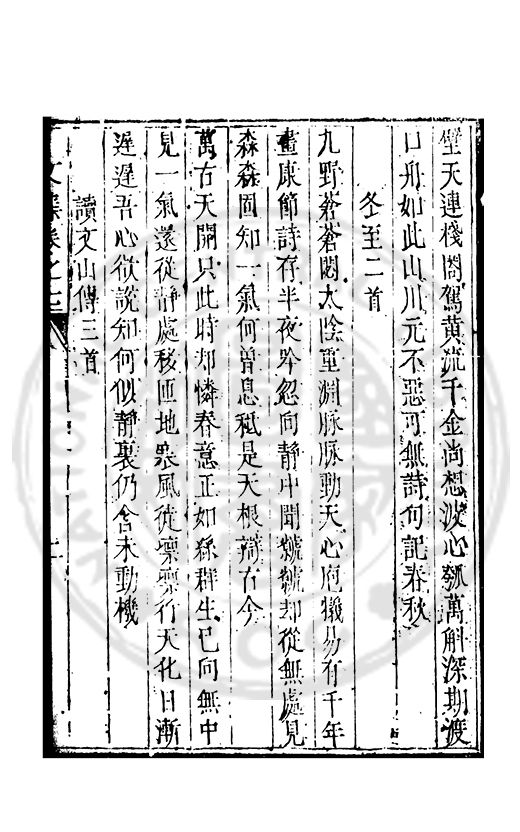 壁天連棧閣駕黃流千金尚想波心瓠萬斛深期渡
口舟如此山川元不惡可無詩句記春秋
冬至二首
九野蒼蒼閟太陰重淵脉脉動天心庖犧易有千年
畫康節詩存半夜吟忽向靜中聞虩虩却從無處見
森森固知一氣何曾息秪是天根辯古今
萬古天開只此時却憐春意正如絲群生已向無中
見一氣還從靜處移匝地衆風從凛凛行天化日漸
遲遲吾心欲說知何似靜裏仍含未動機
讀文山傳三首